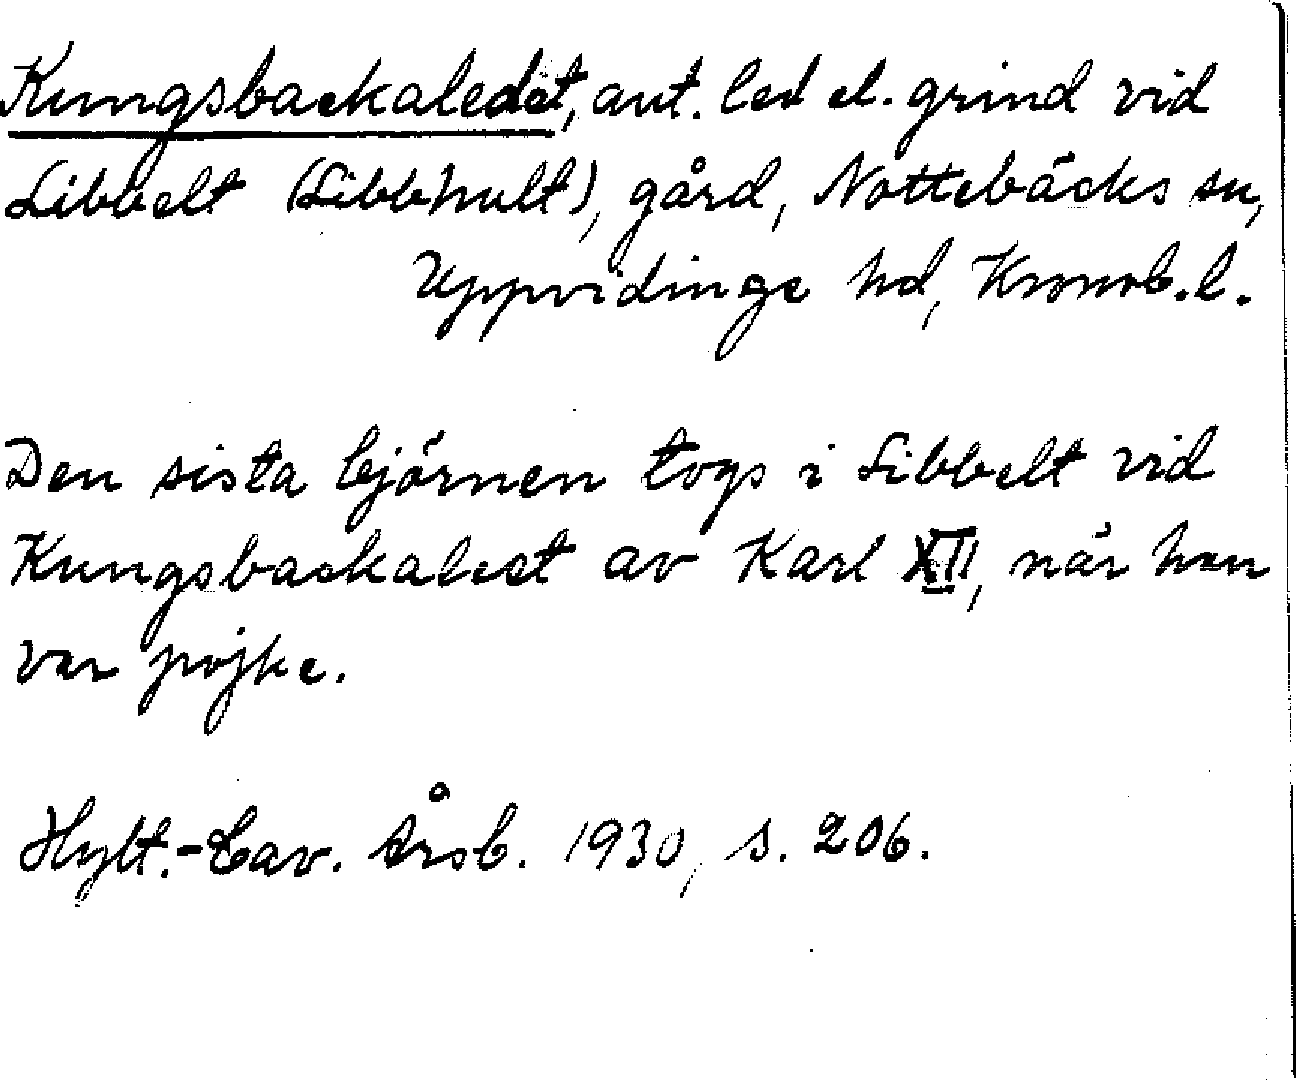 Kungsbackaledet, ant. led el. grind vid
Libbelt (Libbhult), gård, Nottebäcks sn,
Uppvidinge hd, Kronob. l.
Den sista björnen togs i Libbelt vid
Kungsbackaleet av Karl XII, när han
var pojke.
Hylt.-Cav. Årsb. 1930, s. 206.